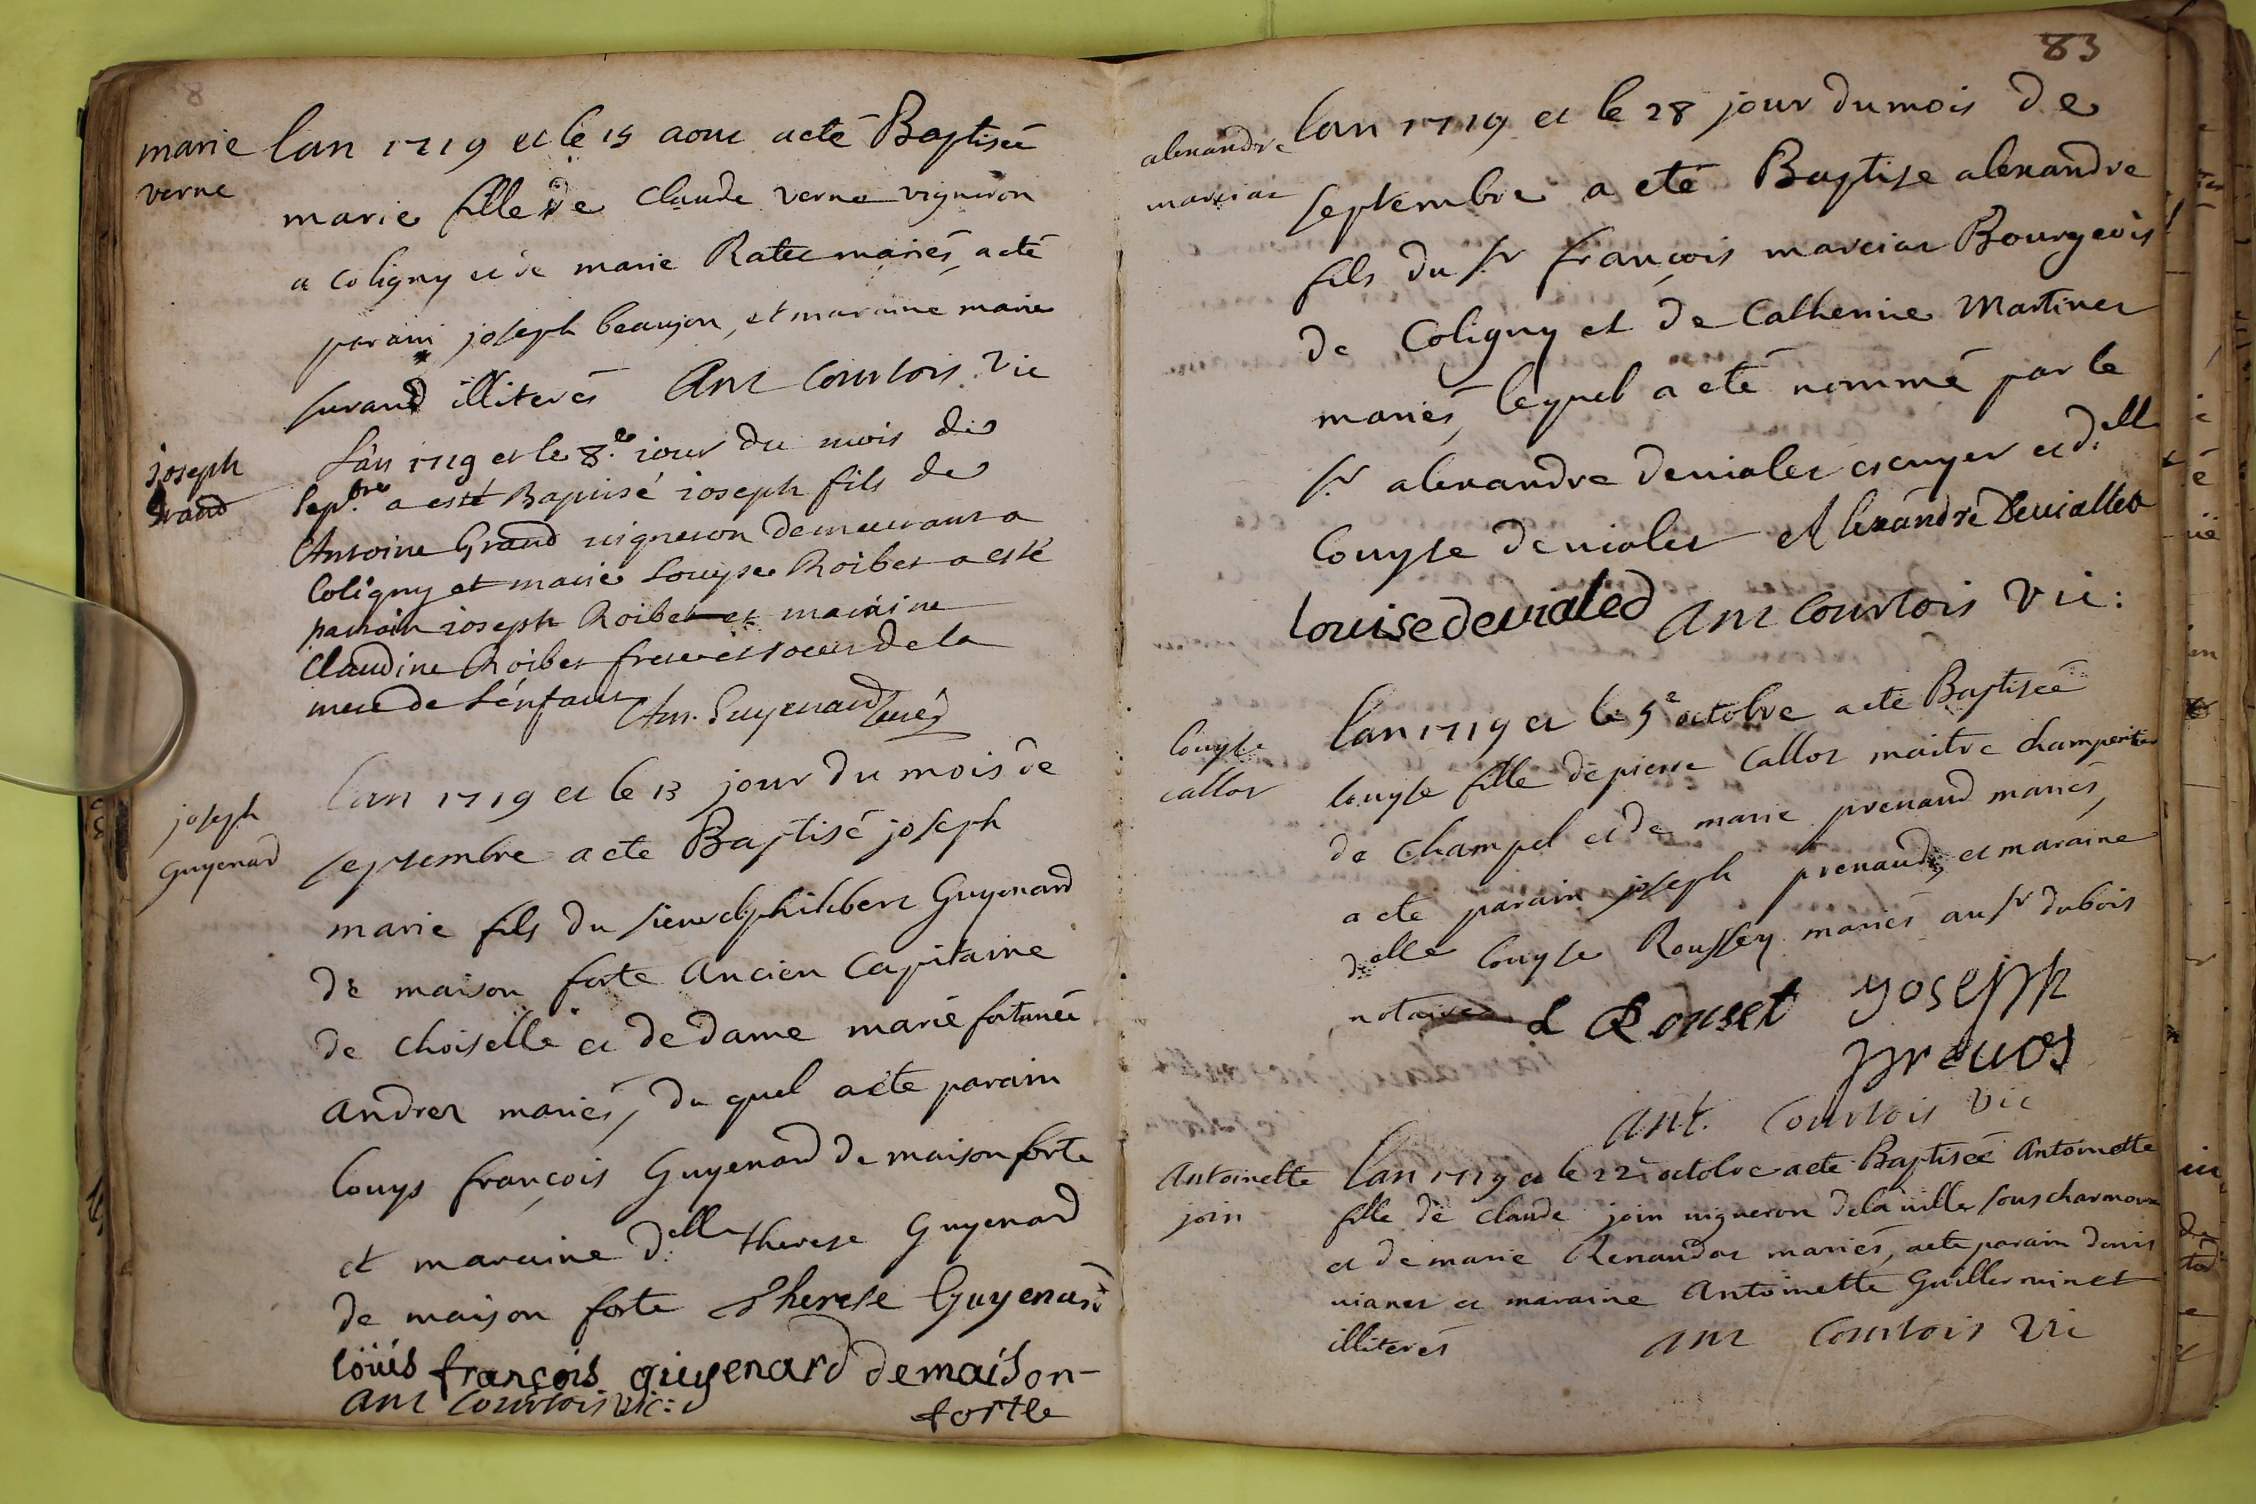 marie
verne
lan 1719 et le 15 aout a eté Baptiseé
marie fille de Claude verne vigneron
a Coligny et de marie Ratec mariés, a eté
parain joseph beaujon, et maraine marie
surand illiterés Ant Courtois Vic
joseph
Grand
L'an 1719 et le 8.e iour du mois de
Sep.bre a esté Baptisé ioseph fils de
Antoine Grand vigneron demeurant a
Coligny et marie Louyse Roibet a esté
parrain ioseph Roibet et maraine
Claudine Roibet frere et soeur de la
mere de L'enfant Ant. Guyenard Curé
joseph
Guyenard
lan 1719 et le 13 jour du mois de
septembre a eté Baptisé joseph
marie fils du sieur philibert Guyenard
de maison forte Ancien Capitaine
de choiselle et de dame marie fortuneé
andrez mariés, du quel a eté parain
louys françois Guyenard de maison forte
et maraine d.elle therese Guyenard
de maison forte Therese Guyenard
loüis françois guyenard de maison-
forte
Ant Courtois vic:
83
alexandre
marciat
lan 1719 et le 28 jour du mois de
septembre a eté Baptise alexandre
fils du sr françois marciat Bourgeois
de Coligny et de Catherine Martinet
mariés, lequel a eté nommé par le
sr alexandre devialet escuyer et d.elle
louyse devialet Alexandre Deviallet
louise devialed Ant Courtois Vic:
louyse
callot
lan 1719 et le 5e octobre a eté Baptiseé
louyse fille de pierre Callot maitre charpentier
de Champel et de marie prenaud mariés,
a eté parain joseph prenaud, et maraine
d.elle louyse Roussey mariés au sr dubois
notaire L Rouset yoseph
prevos
Ant. Courtois Vic
Antoinette
join
lan 1719 et le 22 octobre a eté Baptiseé Antoinette
fille de Claude join vigneron de la ville sous charmoux
et de marie Renaudat mariés, a eté parain denis
vianet et maraine Antoinette Guillerminet
illiterés Ant Courtois Vic